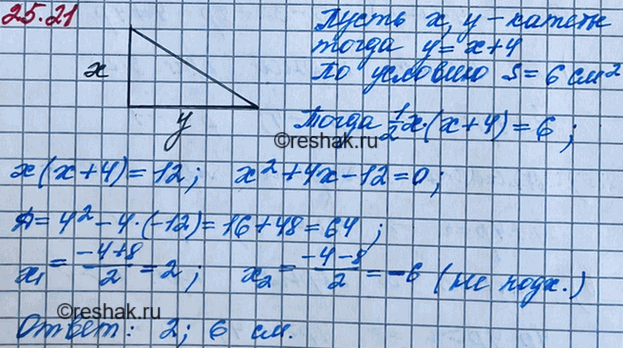 25.21
Пусть x, y - катеты
тогда y = x+4
x
По условию S = 6 см²
y
©reshak.ru
Тогда 1/2 x·(x+4) = 6;
x(x+4) = 12; x² + 4x - 12 = 0;
D = 4² - 4·(-12) = 16 + 48 = 64;
x₁ = (-4+8)/2 = 2; x₂ = (-4-8)/2 = -6 (не подх.)
©reshak.ru
Ответ: 2; 6 см.